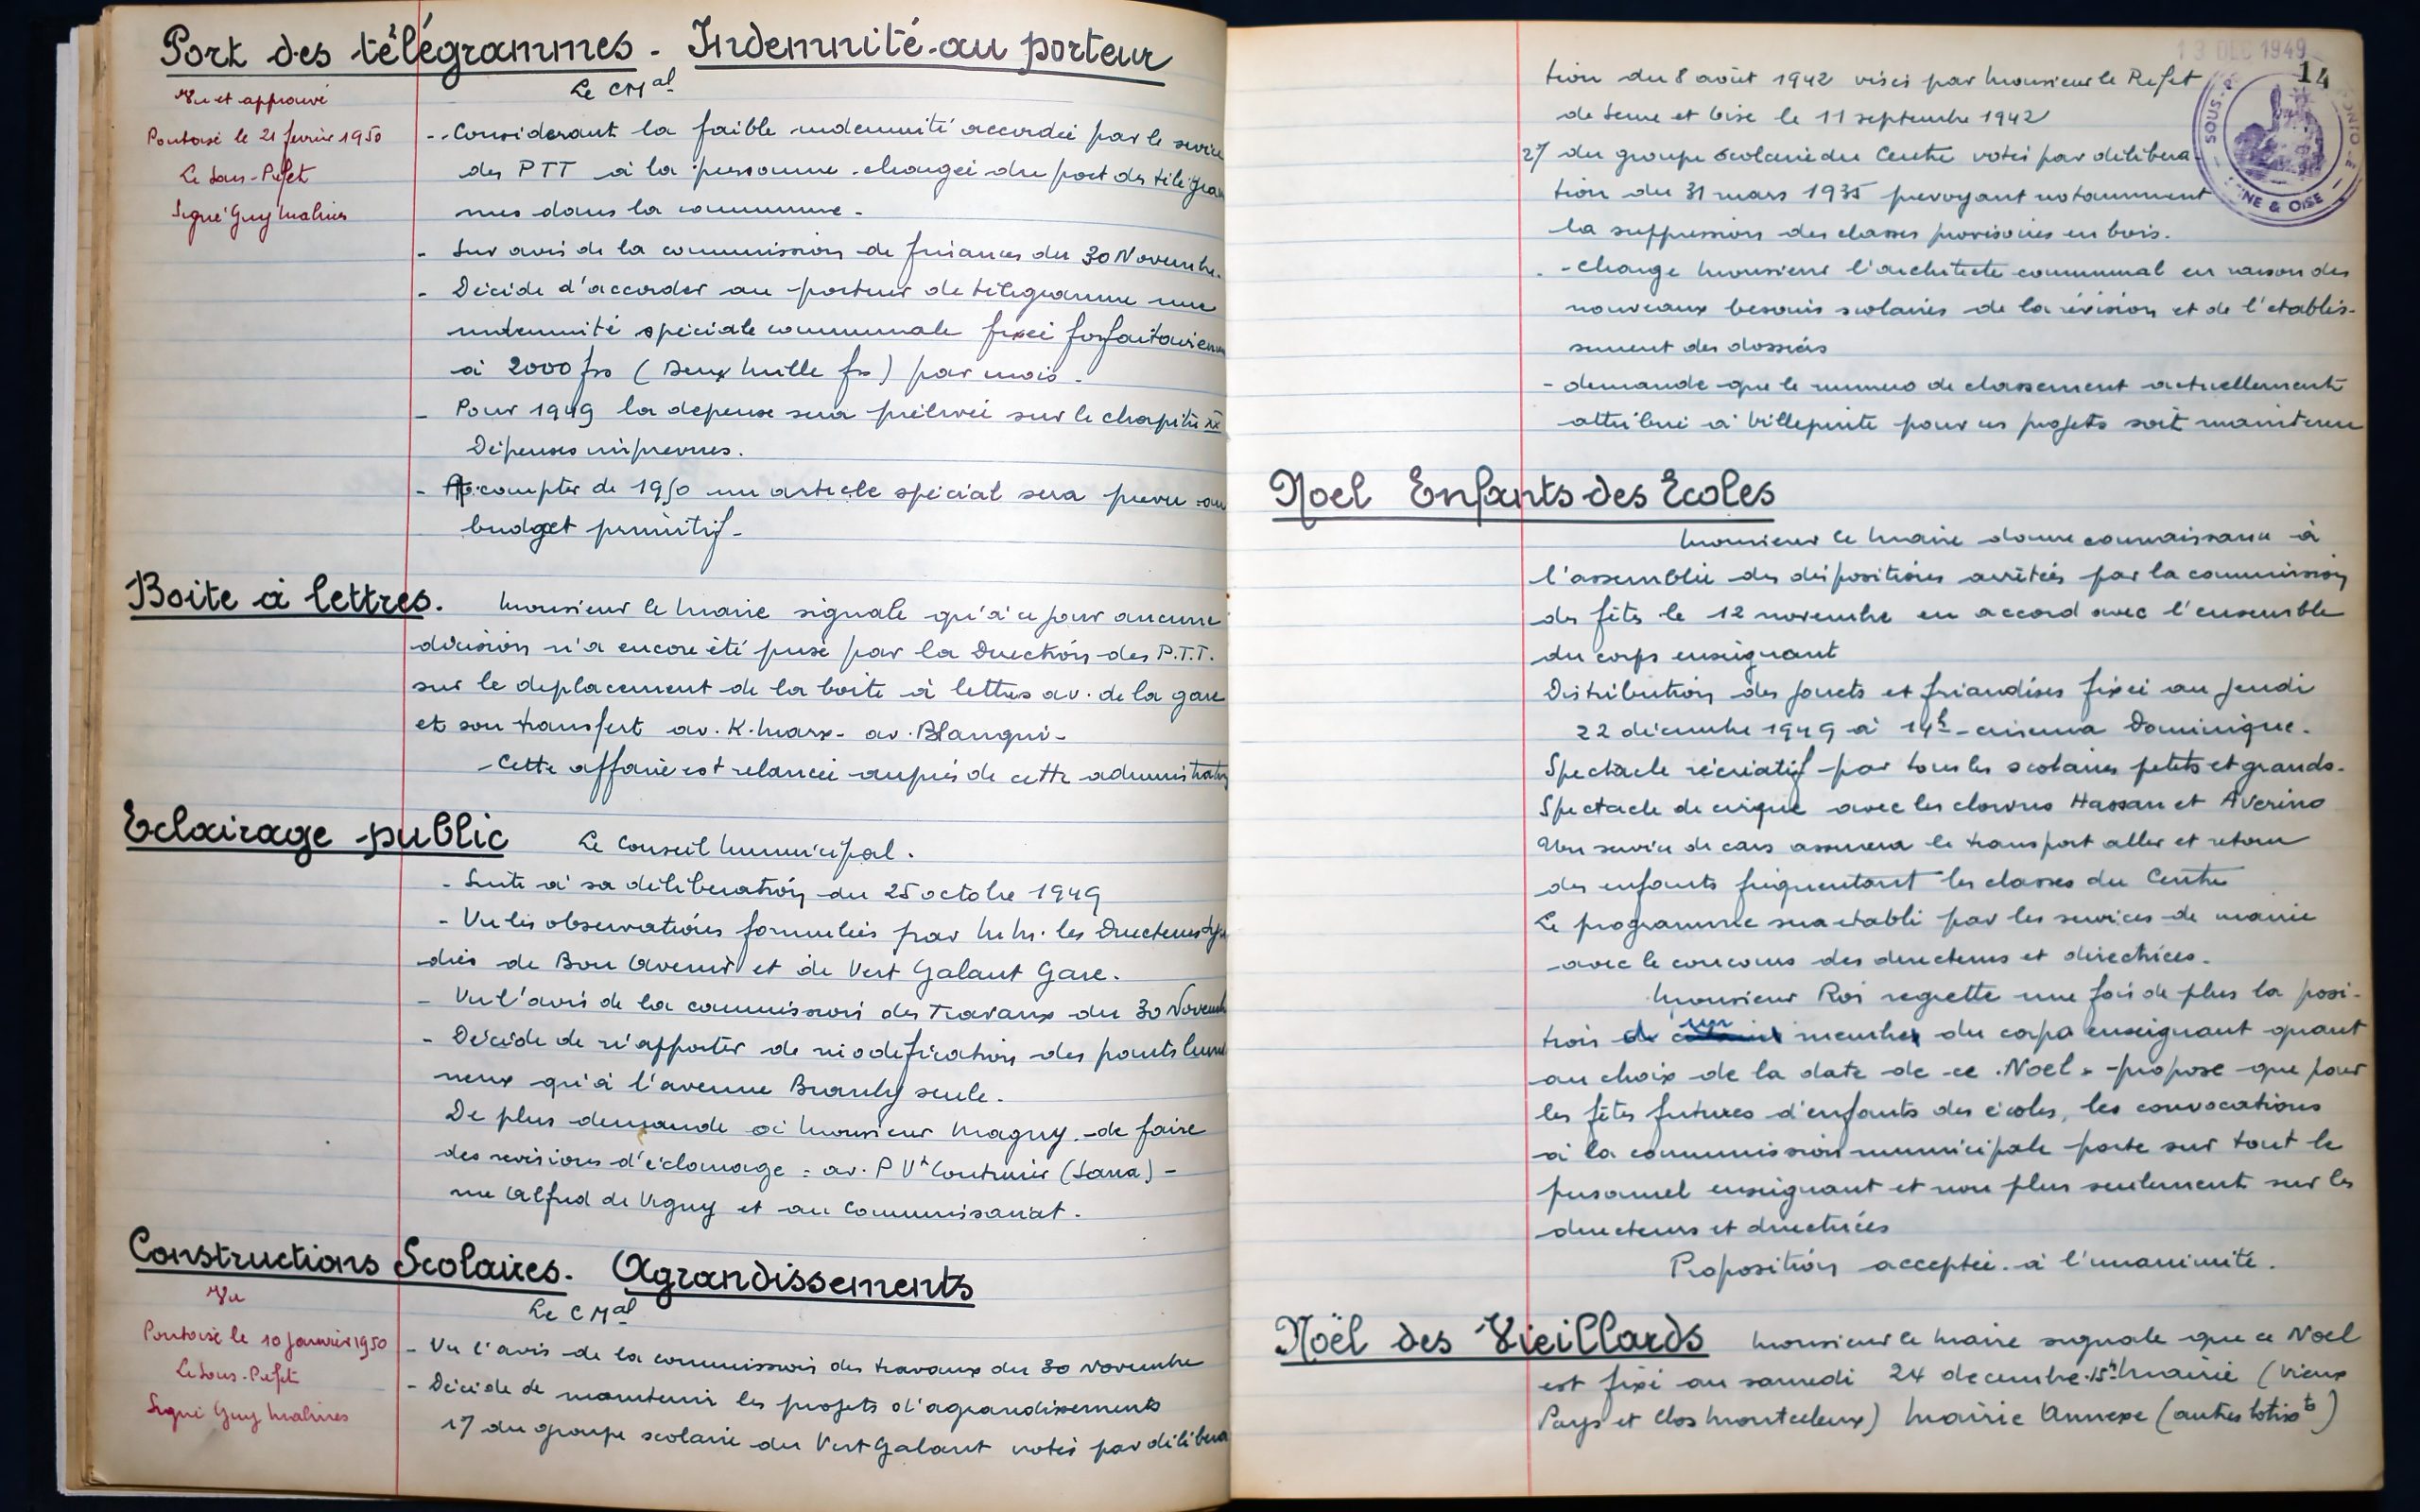 Port des télégrammes - Indemnité au porteur
Vu et approuvé
Pontoise le 21 fevrier 1950
Le Sous-Préfet
Signé Guy Malines
Le CMal
- Considerant la faible indemnité accordée par le service
des PTT à la personne chargée du port des télégram
mes dans la commune.
- Sur avis de la commission de finances du 30 Novembre.
- Décide d'accorder au porteur de télégramme une
indemnité spéciale communale fixée forfaitairem
à 2000 frs (Deux mille frs) par mois.
- Pour 1949 la dépense sera prélevée sur le chapitre XX
Dépenses imprevues.
- A compter de 1950 un article spécial sera prevu au
budget primitif -
Boite à lettres.
Monsieur le Maire signale qu'à ce jour aucune
décision n'a encore été prise par la Direction des P.T.T.
sur le deplacement de la boite à lettres av. de la gare
et son transfert av. K. Marx - av. Blanqui -
- Cette affaire est relancée auprès de cette administration
Eclairage public
Le Conseil Municipal.
- Suite à sa délibération du 25 octobre 1949
- Vu les observations formulées par MM. les Directeurs Syn
dics de Bon Avenir et de Vert Galant Gare.
- Vu l'avis de la commission des Travaux du 30 Novemb
- Décide de n'apporter de modification des points lumi
neux qu'à l'avenue Branly seule.
De plus demande à Monsieur Magny - de faire
des revisions d'éclairage : av. P Vt Couturier (Sana) -
rue Alfred de Vigny et au Commissariat.
Constructions Scolaires. Agrandissements
Vu
Pontoise le 10 Janvier 1950
Le Sous-Préfet
Signé Guy Malines
Le CMal
- Vu l'avis de la commission des travaux du 30 Novembre
- Décide de maintenir les projets d'agrandissements
1°/ du groupe scolaire du Vert Galant votés par délibera
13 DEC 1949
14
SOUS-P
SEINE & OISE
tion du 8 août 1942 visés par Monsieur le Préfet
de Seine et Oise le 11 septembre 1942
2°/ du groupe scolaire du Centre votés par délibera-
tion du 31 mars 1935 prevoyant notamment
la suppression des classes provisoires en bois.
- charge Monsieur l'architecte communal en raison des
nouveaux besoins scolaires de la révision et de l'etablis-
sement des dossiers
- demande que le numero de classement actuellement
attribué à Villepinte pour ces projets soit maintenu
Noel Enfants des Ecoles
Monsieur le Maire donne connaissance à
l'assemblée des dispositions arrêtées par la commission
des fêtes le 12 novembre en accord avec l'ensemble
du corps enseignant
Distribution des jouets et friandises fixée au Jeudi
22 décembre 1949 à 14h - cinema Dominique.
Spectacle récréatif par tous les scolaires petits et grands.
Spectacle de cirque avec les clowns Hassan et Averino
Un service de cars assurera le transport aller et retour
des enfants fréquentant les classes du Centre
Le programme sera etabli par les services de mairie
avec le concours des directeurs et directrices.
Monsieur Roi regrette une fois de plus la posi-
tion de un membre du corps enseignant quant
au choix de la date de ce Noel. - propose que pour
les fêtes futures d'enfants des écoles, les convocations
à la commission municipale porte sur tout le
personnel enseignant et non plus seulement sur les
directeurs et directrices
Proposition acceptée à l'unanimité.
Noël des Vieillards
Monsieur le Maire signale que ce Noel
est fixé au samedi 24 decembre 15h Mairie (Vieux
Pays et Clos Montceleux) Mairie Annexe (autres lotists)